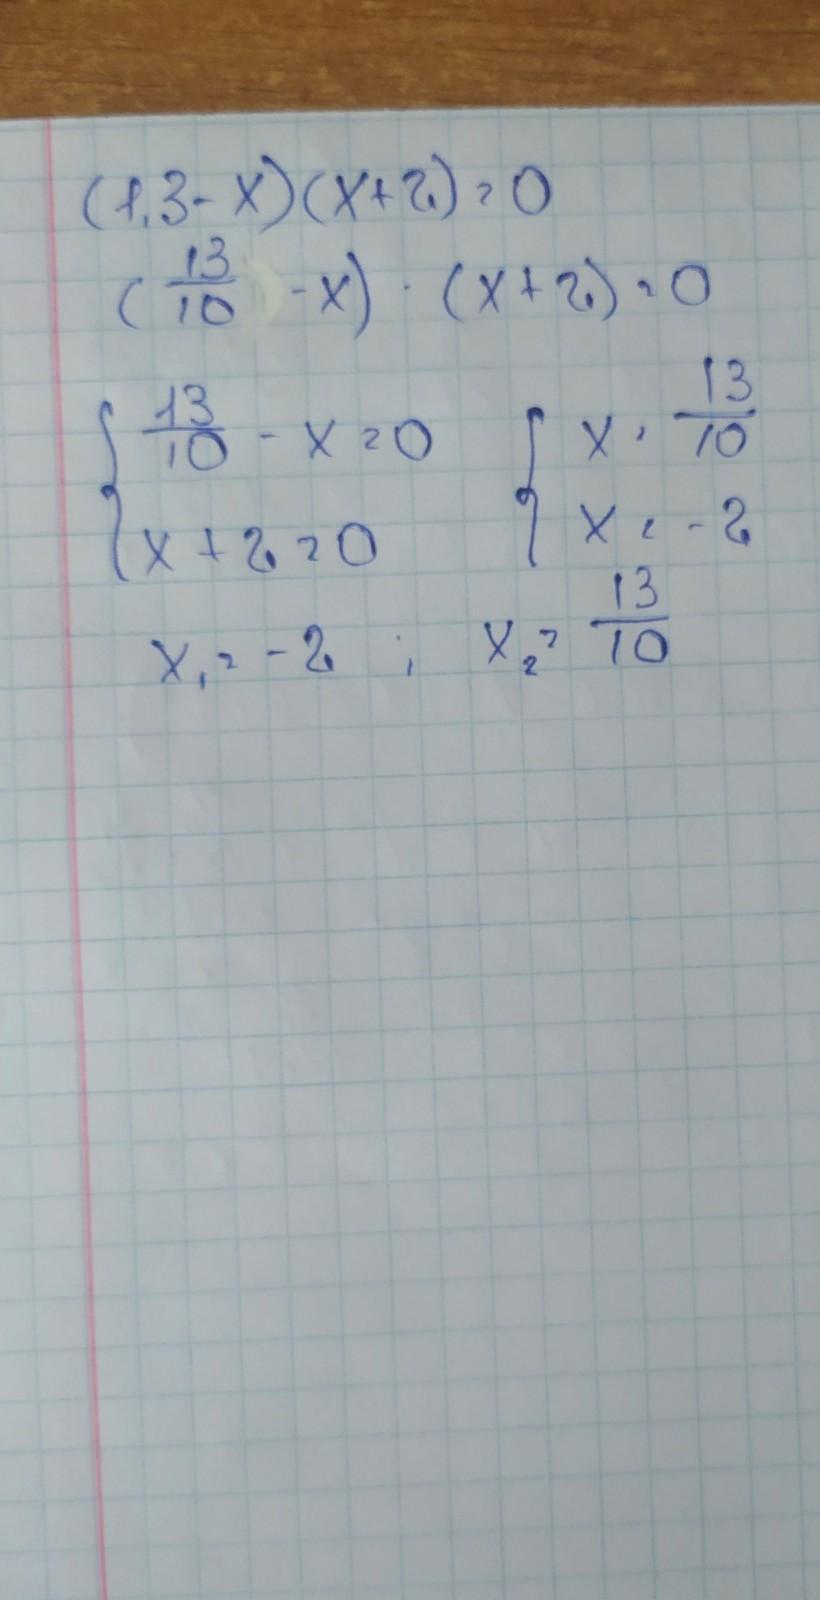 (1,3-x)(x+2)=0
(13/10 -x)·(x+2)=0
{ 13/10 - x=0 { x=13/10
{ x+2=0 { x=-2
x₁=-2 ; x₂=13/10